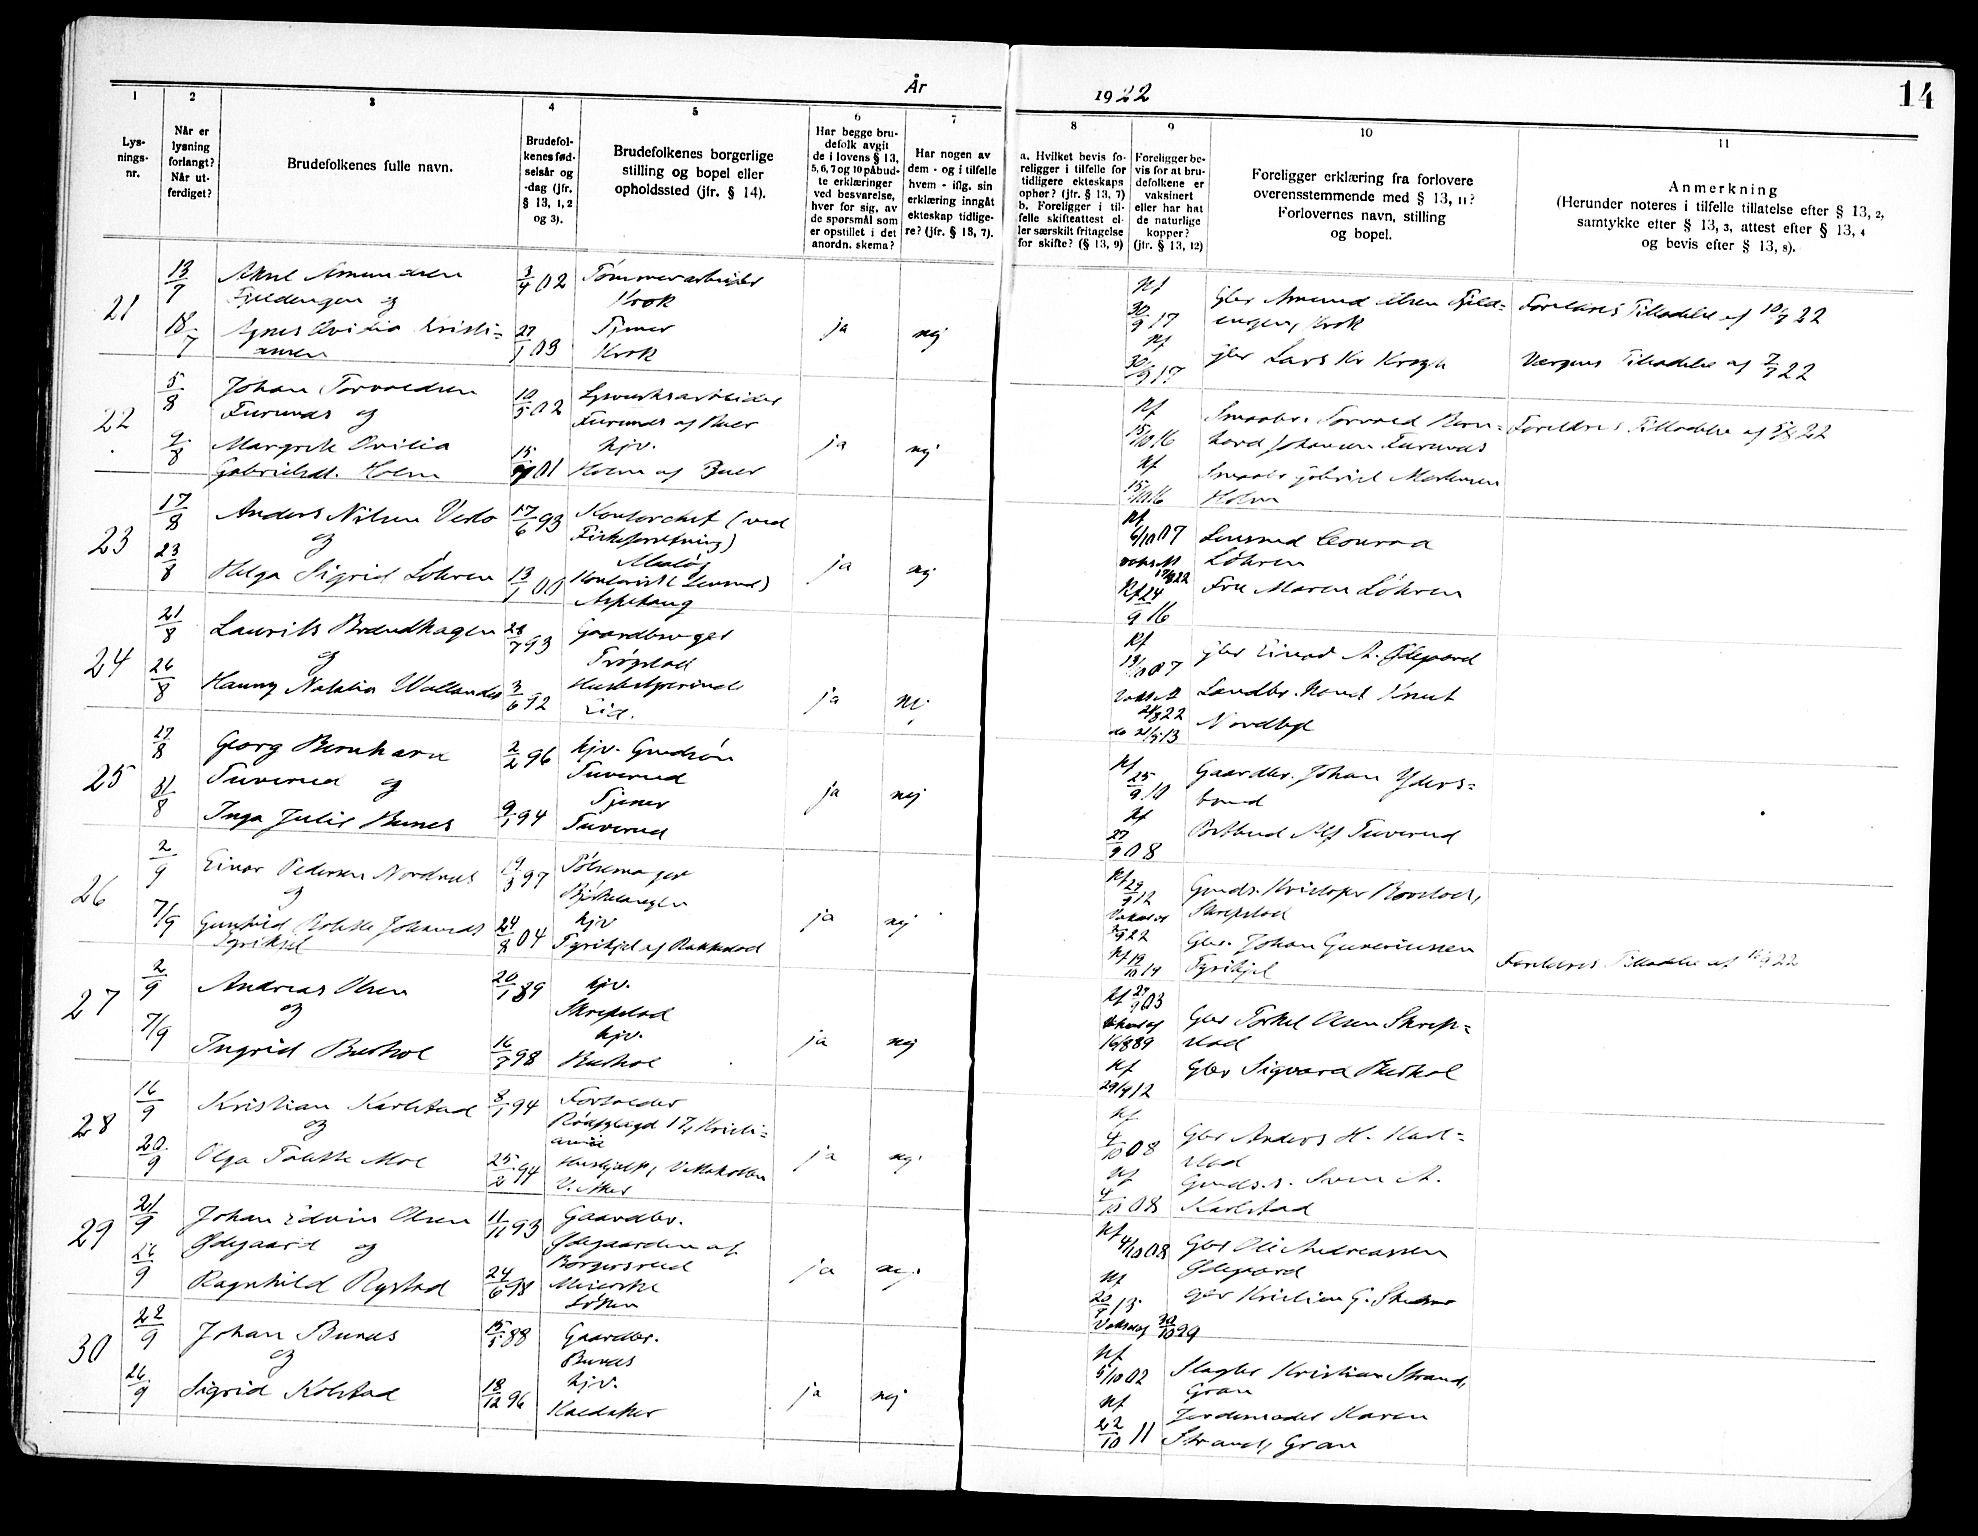 År
1922
14
1
2
3
4
5
6
7
8
9
10
11
Lys-
nings-
nr.
Når er
lysning
forlangt?
Når ut-
ferdiget?
Brudefolkenes fulle navn.
Brudefol-
kenes fød-
selsår og
-dag (jfr.
§ 13, 1, 2
og 3).
Brudefolkenes borgerlige
stilling og bopel eller
opholdssted (jfr. § 14).
Har begge bru-
defolk avgit
de i lovens § 13,
5, 6, 7 og 10 påbud-
te erklæringer
ved besvarelse,
hver for sig, av
de spørsmål som
er opstillet i det
anordn. skema?
Har nogen av
dem - og i tilfelle
hvem - iflg. sin
erklæring inngåt
ekteskap tidlige-
re? (jfr. § 13, 7).
a. Hvilket bevis fo-
religger i tilfelle for
tidligere ekteskaps
ophør? (jfr. § 13, 7)
b. Foreligger i til-
felle skifteattest el-
ler særskilt fritagelse
for skifte? (§ 13, 9)
Foreligger be-
vis for at bru-
defolkene er
vaksinert
eller har hat
de naturlige
kopper?
(jfr. § 13, 12)
Foreligger erklæring fra forlovere
overensstemmende med § 13, 11?
Forlovernes navn, stilling
og bopel.
Anmerkning
(Herunder noteres i tilfelle tillatelse efter § 13, 2,
samtykke efter § 13, 3, attest efter § 13, 4
og bevis efter § 13, 8).
21
13/7
18/7
Amundsen
Fjeldengen og
Agnes Ovidia Kristi=
ansen
3/4 02
27/1 03
Tømmerarbeider
Krok
Tjener
Krok
ja
nej
Kf
30/9 17
Kf
30/9 17
Gbr Amund Olsen Fjeld=
engen, Krok
gbr Lars Kr Krogh
Forældres Tilladelse af 10/7 22
Værges Tilladelse af 7/7 22
22
5/8
9/8
Johan Torvaldsen
Furunes og
Margrete Ovilia
Gabrielsd. Holm
10/5 02
01
Furunes af Buer
hjv.
Holm af Buer
ja
nej
Kf
15/10 16
Kf
15/10 16
Smaabr. Torvald Bern=
hard Johansen Furunes
Smaabr Gabriel Martinsen
Holm
Forældres Tilladelse af 5/8 22
23
17/8
23/8
Anders Nilsen Veslo
og
Helga Sigrid Løhren
17/6 93
13/1 00
Kontorchef (ved
Fiskeforretning)
Maaløy
Kontorist (Lensmd)
Aspehaug
ja
nej
Kf
6/10 07
17/8 22
Kf 24/9 16
Lensmd Conrad
Løhren
Fru Maren Løhren
24
21/8
26/8
Laurits Brandhagen
og
Hanny Natalia Wollander
28/7 93
3/6 92
Gaardbruger
Trøgstad
Husbestyrerinde
Eid.
ja
nej
Kf
13/10 07
21/8 22
do 21/5 13
gbr Einad A. Ødegaard
Landbr. Knut
Nordby
25
27/8
31/8
Georg Bernhard
Tuverud og
Inga Julie Bunes
2/2 96
9/1 94
hjv. Gaardsøn
Tuverud
Tjener
Tuverud
ja
nej
Kf
25/9 10
Kf
27/9 08
Gaardbr. Johan Yders=
bond
Postbud Alf Tuverud
26
2/9
7/9
Einar Pedersen Nordnes
og
Gunhild Bolette Johansd
Tyrikjel
19/3 97
24/8 04
Pølsemager
Bjørkelangen
hjv
Tyrikjel af Rakkestad
ja
nej
Kf 29/9 12
22
Kf 19/10 19
Gaards. Kristofer
Skrepstad
Gbr. Johan Guneriussen
Tyrikjel
Forældres Tilladelse af 22
27
2/9
7/9
Andreas Olsen
og
Ingrid Buskol
20/1 89
16/7 98
hjv.
Skrepstad
hjv.
Buskol
ja
nej
Kf 27/9 03
16/8 89
Kf
29/9 12
Gbr Torkel Olsen Skrep=
stad
Gbr Sigvard Buskol
28
16/9
20/9
Kristian Karlstad
og
Olga Tolette Moe
8/1 94
25/2 94
Forvalder
17, Kristi=
ania
Hushjelp,
V. Aker
ja
nej
Kf.
4/10 08
Kf
4/10 08
Gbr Anders H. Karl=
stad
Gaards.s. Sven A.
Karlstad
29
21/9
26/9
Johan Edvin Olsen
Ødegaard og
Ragnhild Rystad
11/11 93
24/6 98
Gaardbr.
Ødegaarden af
Borgersrud
Meierske
Løken
ja
nej
Kf
4/10 08
Kf
13
Gbr Ole Andreassen
Ødegaard
Gbr Kristian G.
30
22/9
26/9
Johan Bunes
og
Sigrid Kolstad
15/5 88
18/12 96
Gaardbr.
Bunes
hjv.
Kaldaker
ja
nej
30/10 99
Kf
5/10 02
Kf
22/10 11
Slagter Kristian Strand,
Gran
Jordemoder Karen
Strand, Gran